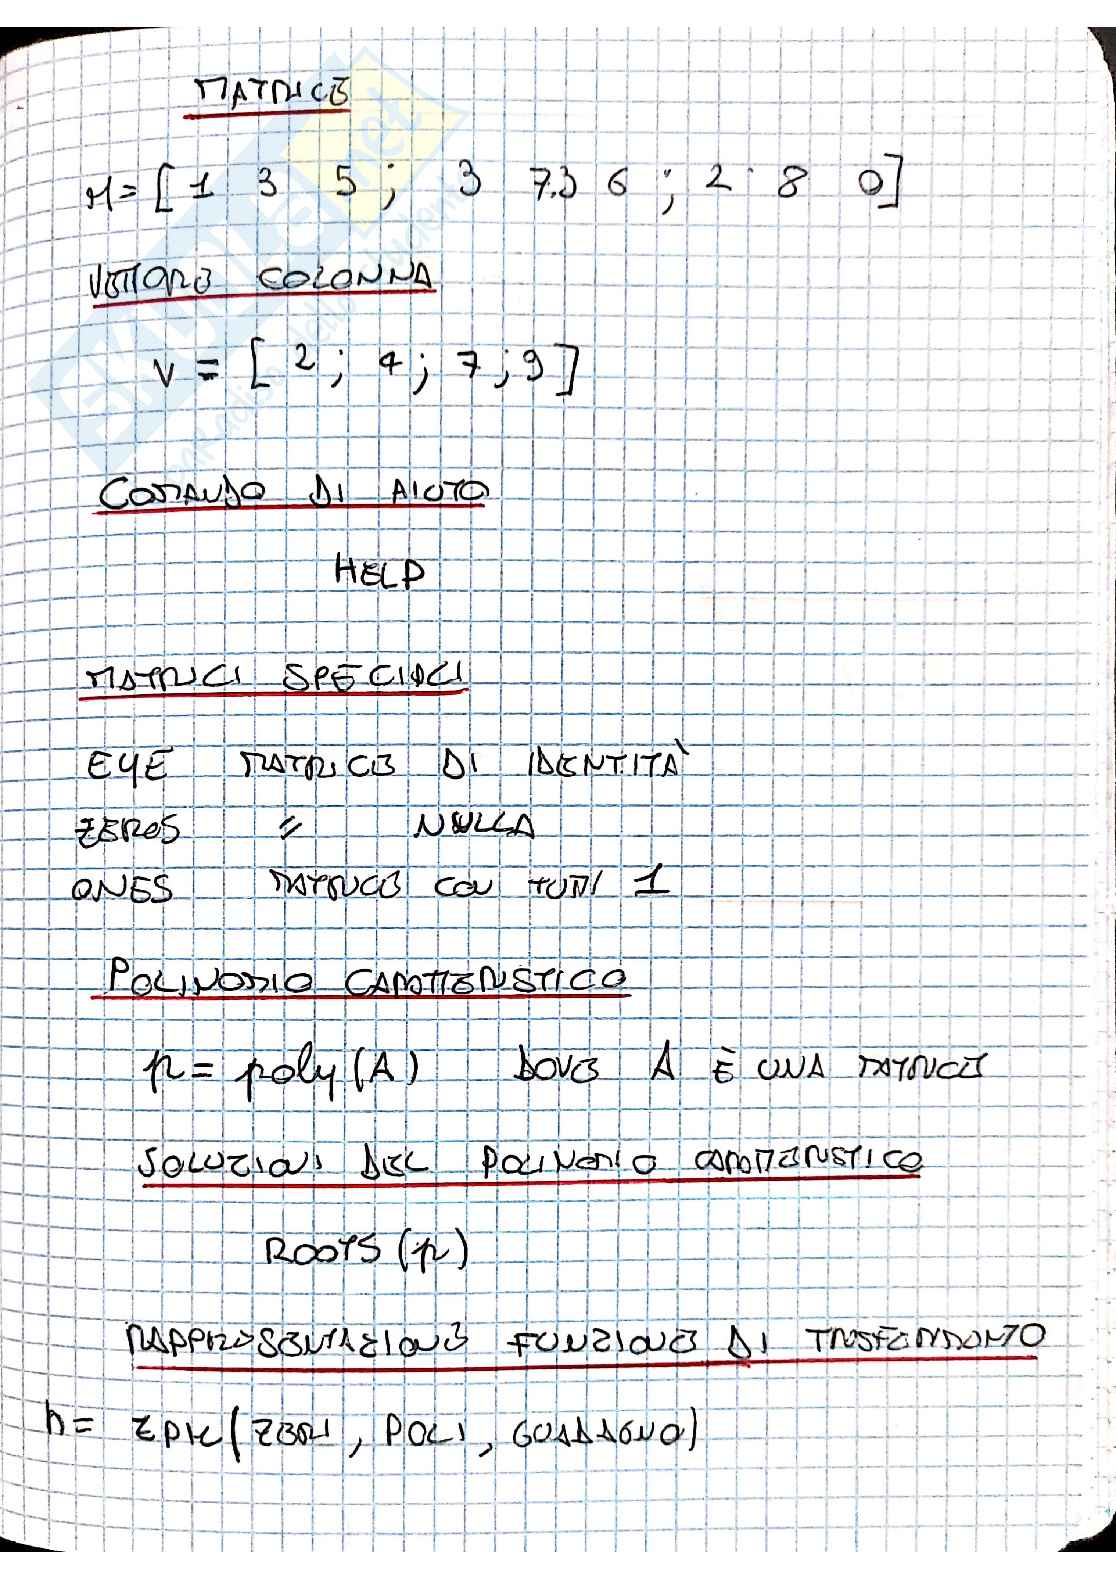 MATRICE
M = [ 1 3 5 ; 3 7.3 6 ; 2 8 0 ]
VETTORE COLONNA
v = [ 2 ; 4 ; 7 ; 9 ]
COMANDO DI AIUTO
HELP
MATRICI SPECIALI
EYE MATRICE DI IDENTITÀ
ZEROS " NULLA
ONES MATRICE CON TUTTI 1
POLINOMIO CARATTERISTICO
p = poly(A) DOVE A È UNA MATRICE
SOLUZIONI DEL POLINOMIO CARATTERISTICO
ROOTS (p)
RAPPRESENTAZIONE FUNZIONE DI TRASFERIMENTO
h = ZPK ( ZERI , POLI , GUADAGNO )